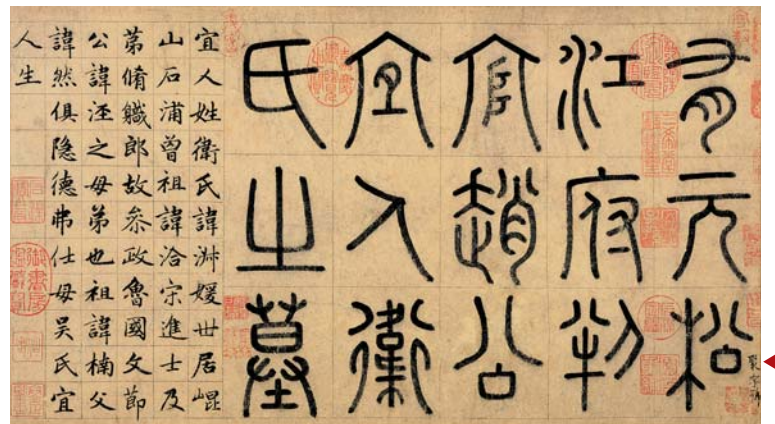 有元松
江府判
官趙公
宜人衛
氏之墓
宜人姓衛氏諱淑媛世居崐
山石浦曾祖諱洽宋進士及
苐脩軄郎故叅政魯國文節
公諱涇之母弟也祖諱楠父
諱然俱隐德弗仕母吴氏宜
人生